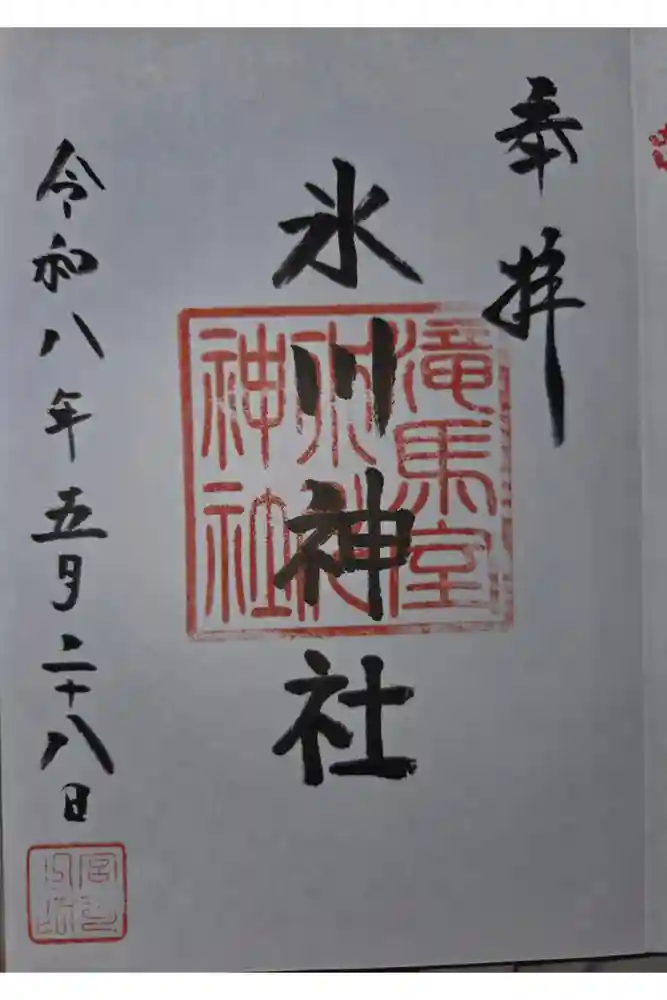 奉拝
氷川神社
滝馬室
氷川
神社
令和八年五月二十八日